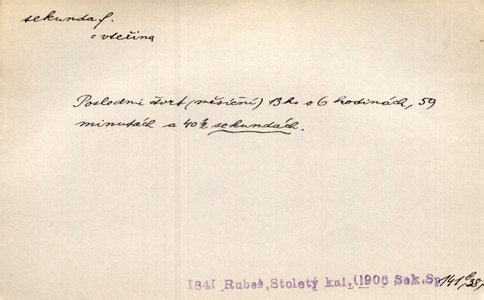 sekunda f.
vteřina
Poslední čtvrt (měsíční) 13ho o 6 hodinách, 59
minutách a 40 sekundách.
1841 Rubeš, Stoletý kal. (1906 Seb. Sp.